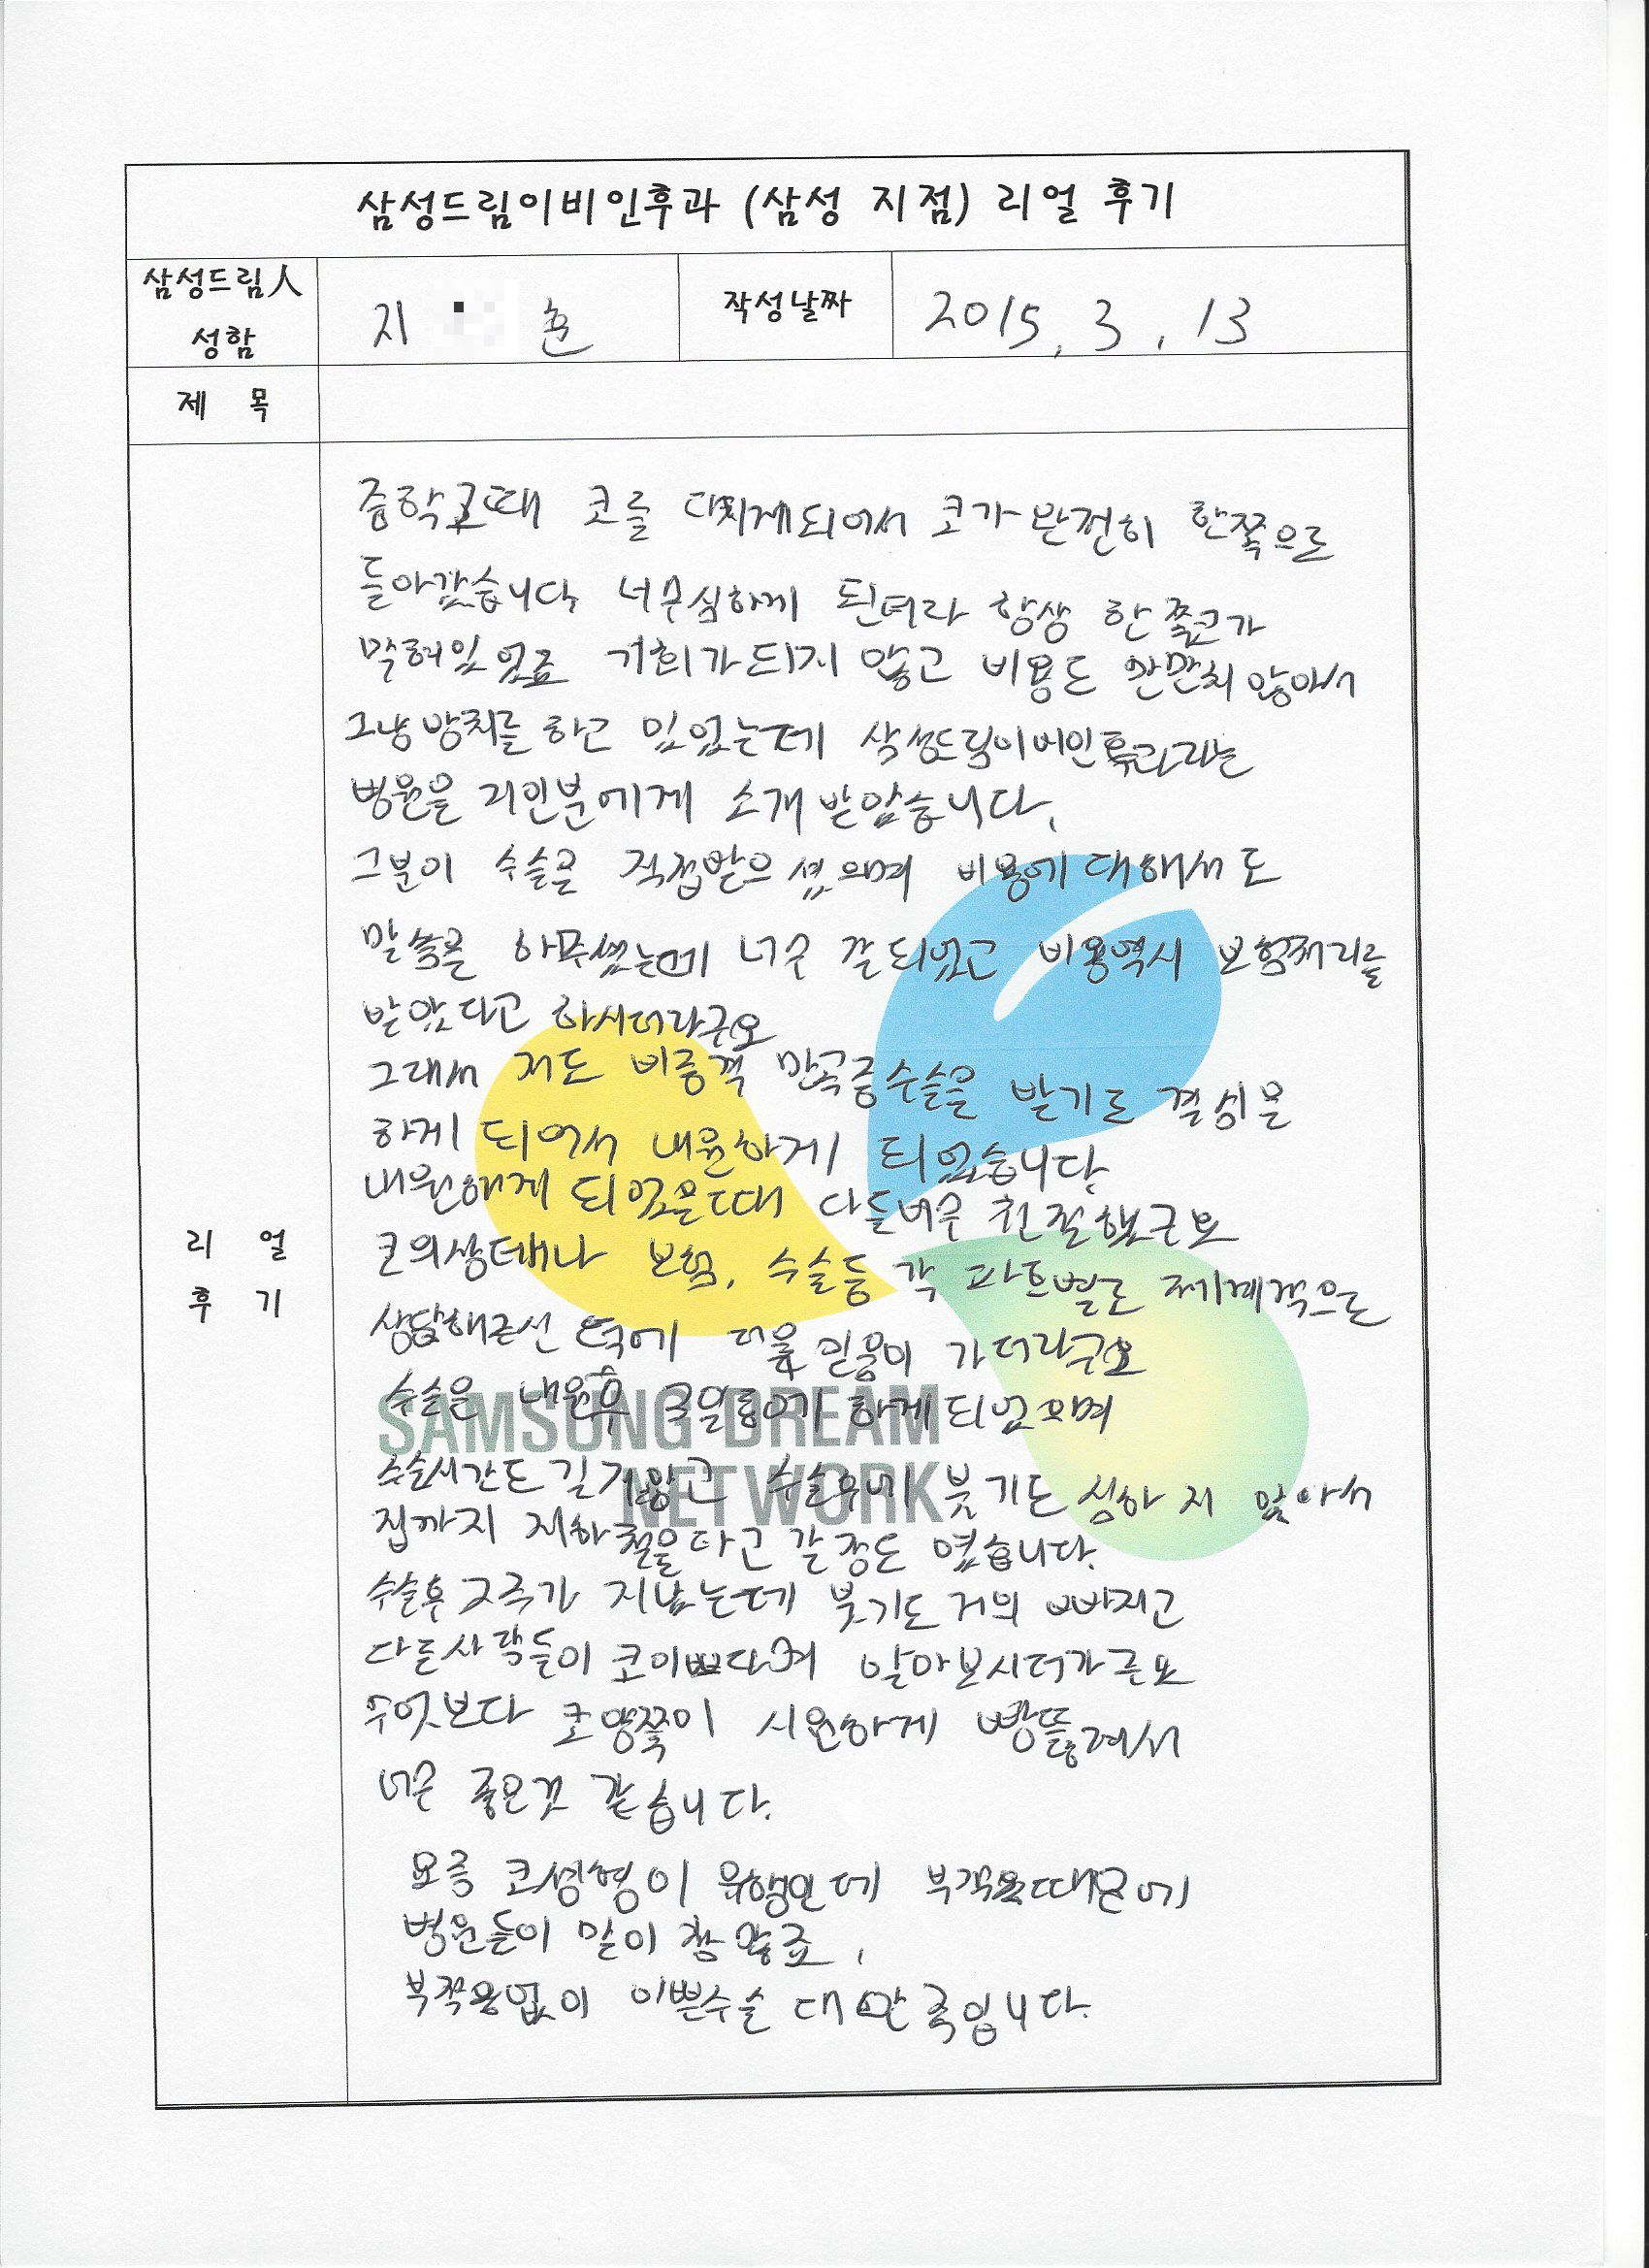 삼성드림이비인후과 (삼성 지점) 리얼 후기
삼성드림人
성함
지 훈
작성날짜
2015. 3. 13
제 목
중학교때 코를 다치게되어서 코가 완전히 한쪽으로
돌아갔습니다. 너무심하게 된터라 항상 한쪽코가
막혀있었죠 기회가되지 않고 비용도 만만치 않아서
그냥방치를 하고 있었는데 삼성드림이비인후과라는
병원을 지인분에게 소개받았습니다.
그분이 수술을 직접받으셨으며 비용에대해서도
말씀을 해주셨는데 너무 잘되었고 비용역시 보험처리를
받았다고 하시더라구요
그래서 저도 비중격 만곡증수술을 받기로 결심을
하게 되어서 내원하게 되었습니다.
내원하게 되었을때 다들너무 친절했구요
코의상태나 보험, 수술등 각 파트별로 체계적으로
상담해주신 덕에 더욱 믿음이 가더라구요
수술은 내원후 3일 하게되었으며
수술시간도길지않고 수술후에 붓기도 심하지 않아서
집까지 지하철을타고 갈정도 였습니다.
수술후 2주가 지났는데 붓기도 거의 빠지고
다른사람들이 코이쁘다며 알아보시더가구요
무엇보다 코양쪽이 시원하게 빵뚫려서
너무 좋은것 같습니다.
요즘 코성형이 유행인데 부작용때문에
병원들이 말이 참많죠,
부작용없이 이쁜수술 대만족입니다.
리 얼
후 기
SAMSUNG DREAM
NETWORK